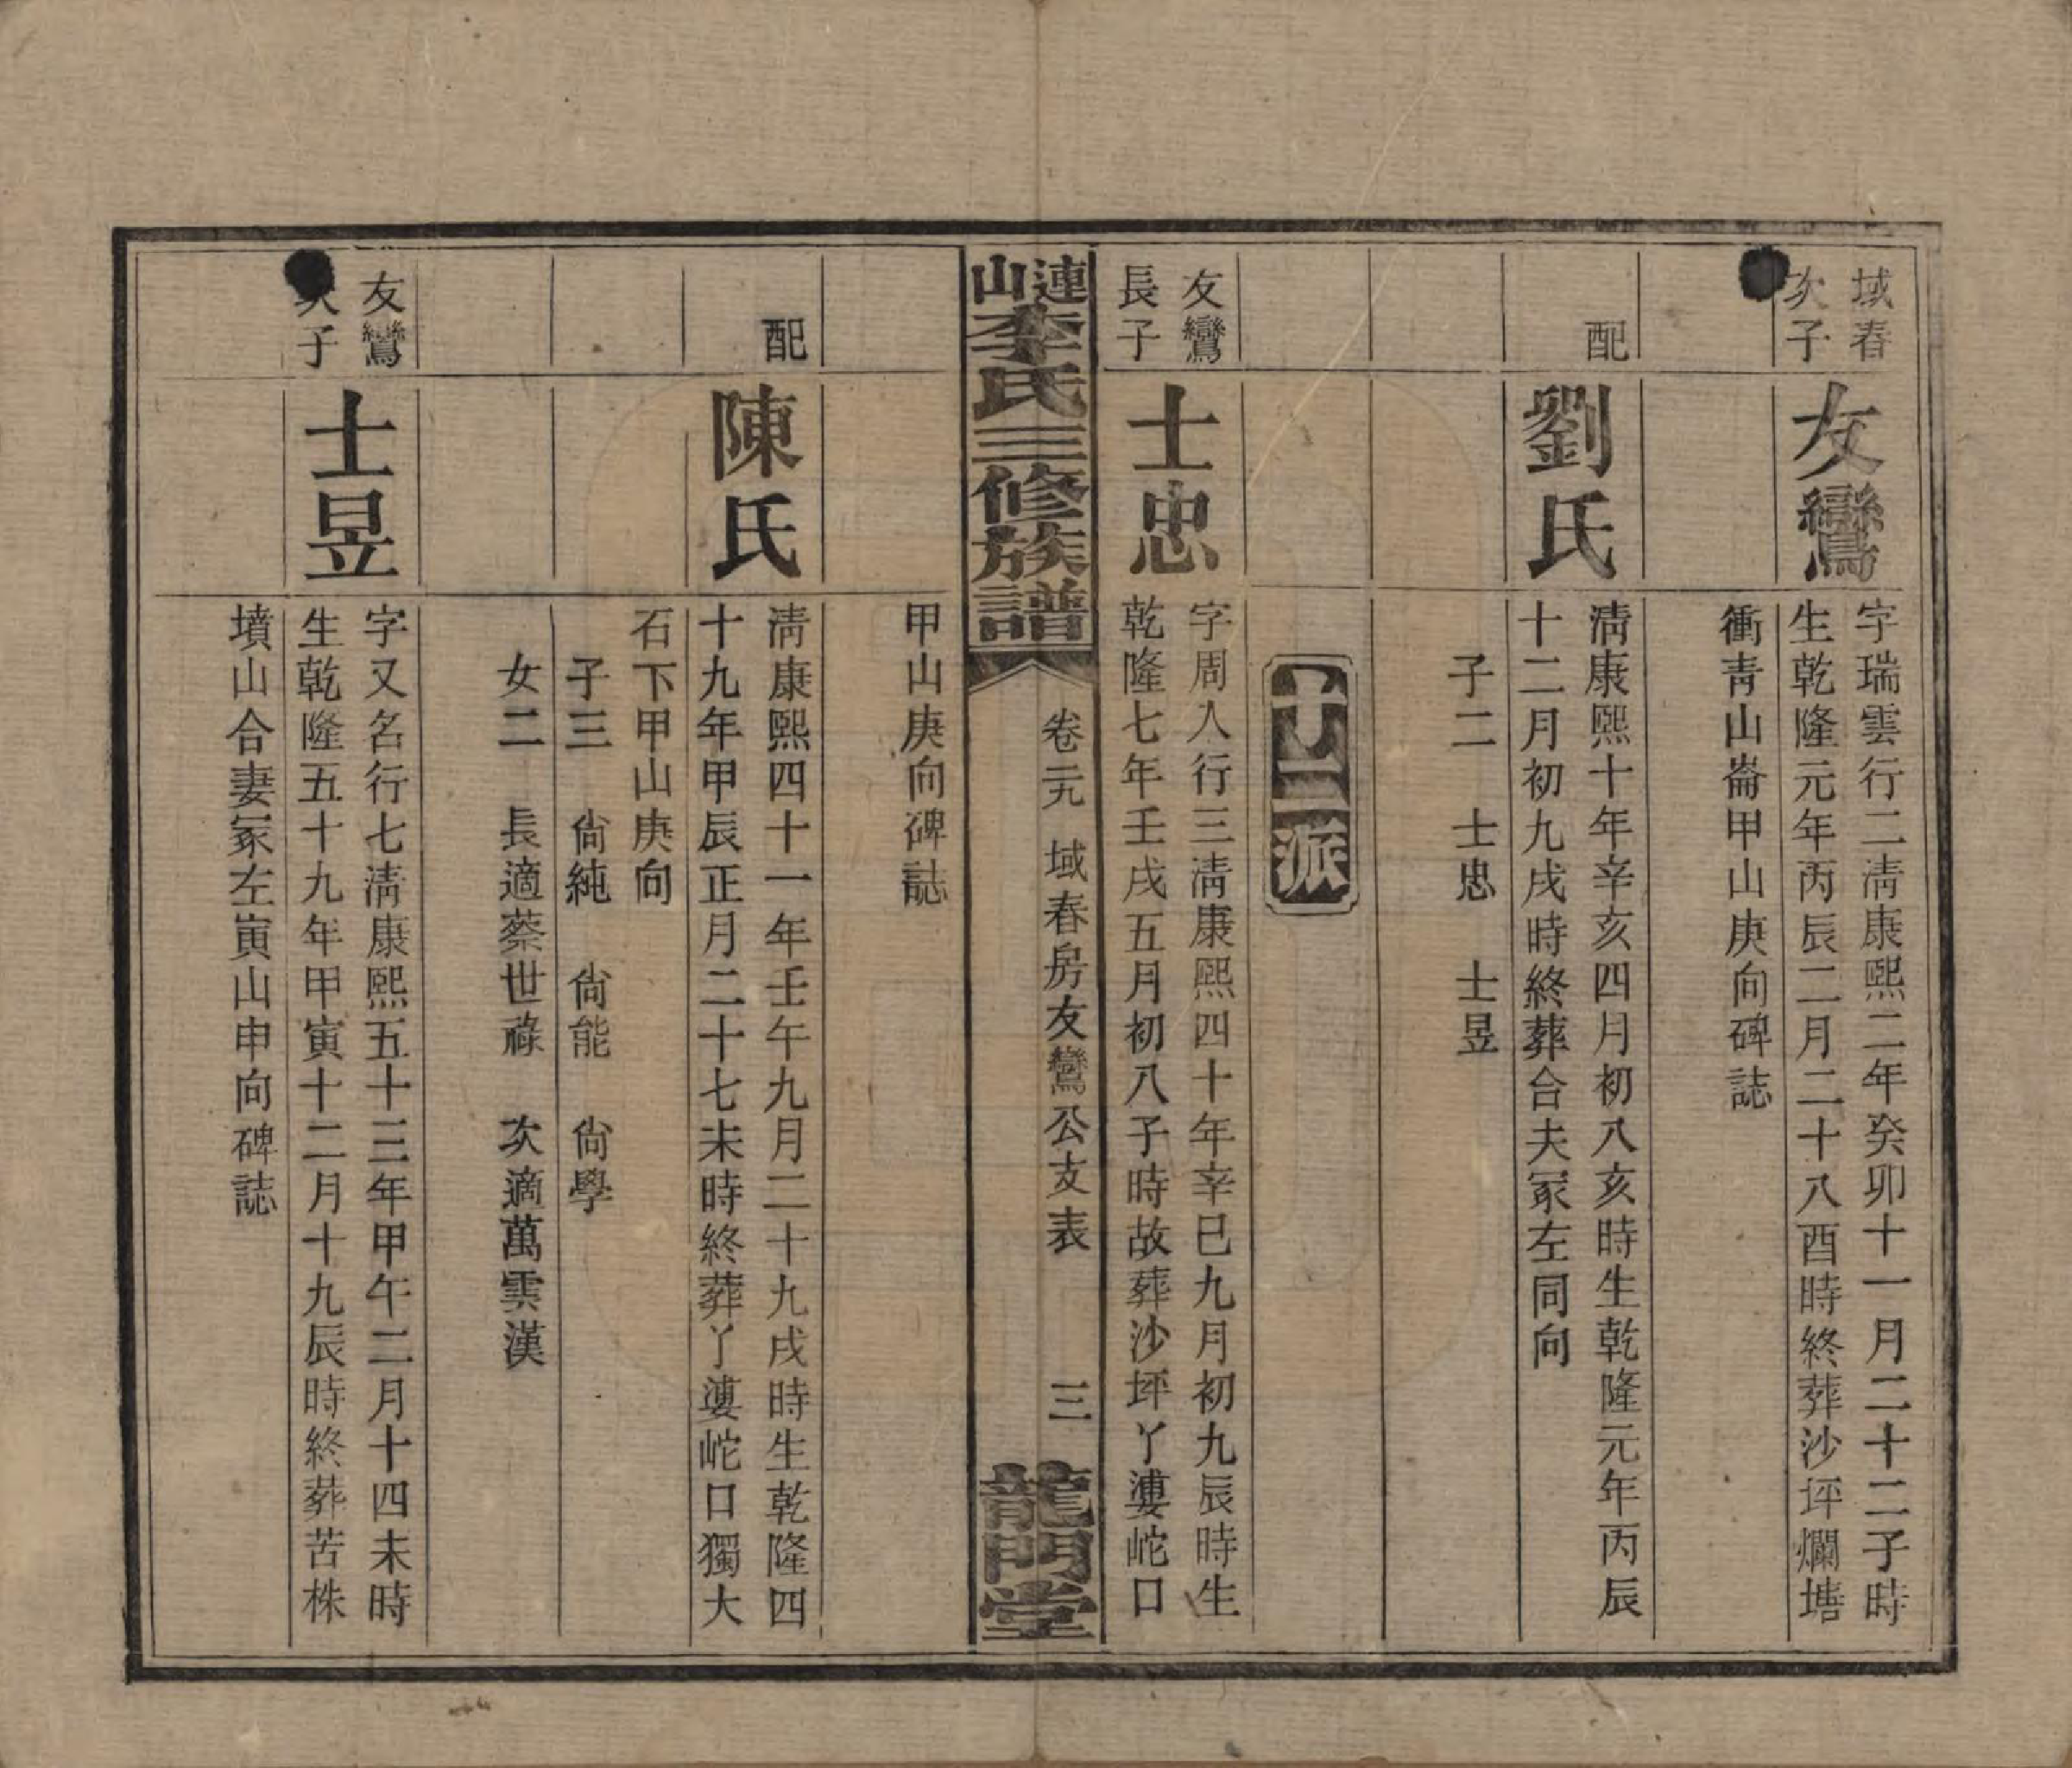 域春
次子
友鸞
字瑞雲行二清康熙二年癸卯十一月二十二子時
生乾隆元年丙辰二月二十八酉時終葬沙坪爛塘
衝靑山崙甲山庚向碑誌
配
劉氏
淸康熙十年辛亥四月初八亥時生乾隆元年丙辰
十二月初九戌時終葬合夫冢左同向
子二 士忠 士昱
十二派
友鸞
長子
士忠
字周人行三淸康熙四十年辛巳九月初九辰時生
乾隆七年壬戌五月初八子時故葬沙坪丫漊岮口
連山李氏三修族譜
卷二九 域春房友鸞公支表 三
龍門堂
甲山庚向碑誌
配
陳氏
淸康熙四十一年壬午九月二十九戌時生乾隆四
十九年甲辰正月二十七未時終葬丫漊岮口獨大
石下甲山庚向
子三 尙純 尙能 尙學
女二 長適蔡世祿 次適萬雲漢
友鸞
次子
士昱
字又名行七淸康熙五十三年甲午二月十四未時
生乾隆五十九年甲寅十二月十九辰時終葬苦株
墳山合妻冢左寅山申向碑誌